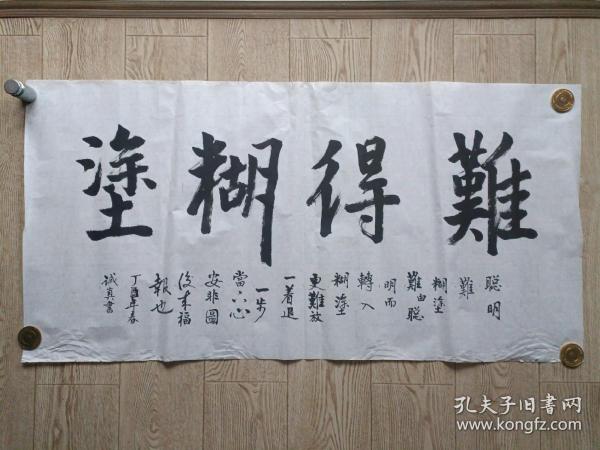 難得糊塗
聰明
難
糊塗
難由聰
明而
轉入
糊塗
更難放
一著退
一步
當下心
安非圖
後來福
報也
丁酉年春
誠真書
孔夫子旧書网
www.kongfz.com